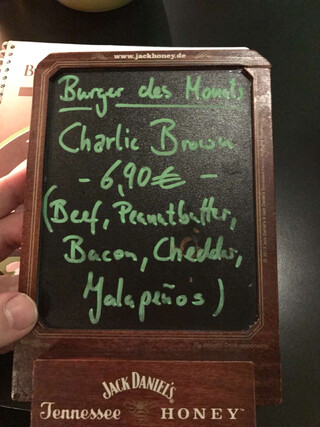 www.jackhoney.de
Burger des Monats
Charlie Brown
- 6,90€ -
(Beef, Peanutbutter,
Bacon, Cheddar,
Jalapeños)
JACK DANIEL'S
Tennessee HONEY™